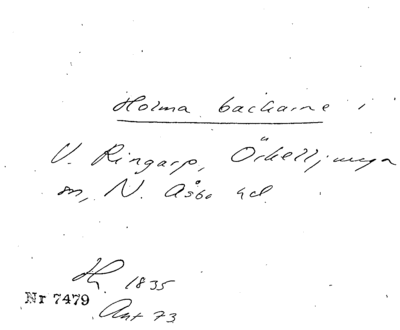 Holma backarne i
V. Ringarp, Örkelljunga
sn, N. Åsbo hd
Hg 1835
Nr 7479
Ant 73